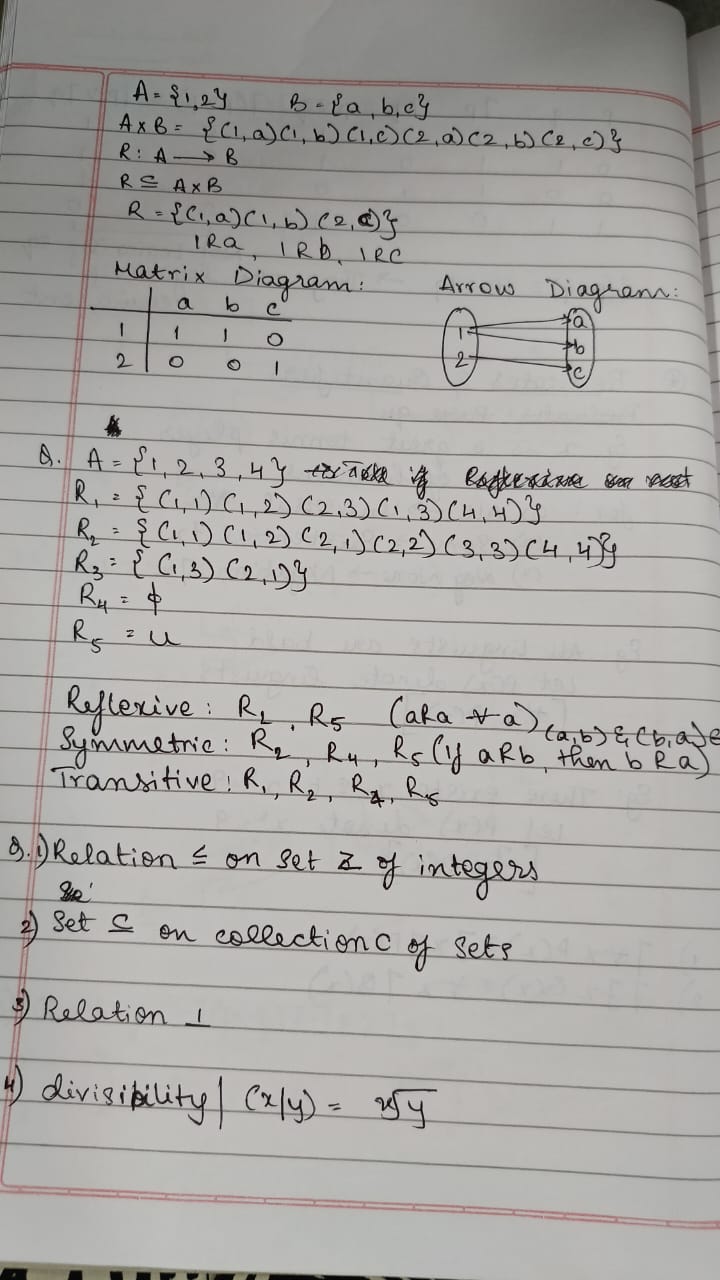 A = {1,2} B = {a, b, c}
A x B = {(1, a) (1, b) (1, c) (2, a) (2, b) (2, c)}
R : A ⟶ B
R ⊆ A x B
R = {(1, a) (1, b) (2, c)}
1Ra, 1Rb, 1RC
Matrix Diagram: Arrow Diagram:
a b c
1 1 1 0
2 0 0 1
1 a
2 b
c
Q. A = {1, 2, 3, 4}
R₁ = { (1,1) (1,2) (2,3) (1,3) (4,4)}
R₂ = { (1,1) (1,2) (2,1) (2,2) (3,3) (4,4)}
R₃ = { (1,3) (2,1)}
R₄ = ϕ
R₅ = u
Reflexive : R₂, R₅ (aRa ∀ a)
(a,b) & (b,a) ∈
Symmetric : R₂, R₄, R₅ (if aRb, then b R a)
Transitive : R₁, R₂, R₄, R₅
Q. 1) Relation ≤ on set Z of integers
2) Set ⊆ on collection C of sets
3) Relation ⊥
4) divisibility | (x/y) = x√y